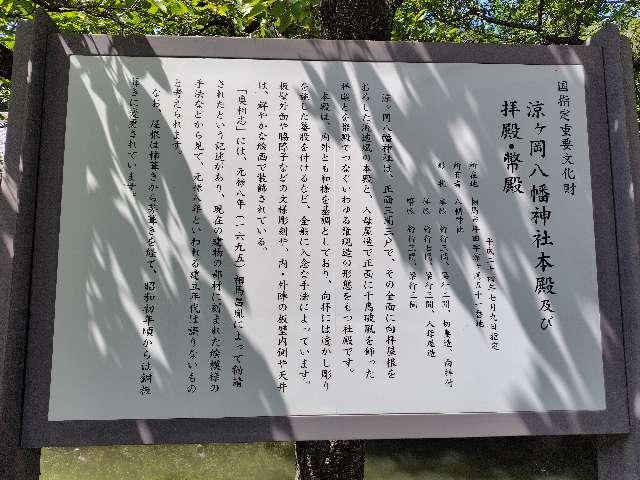 国指定重要文化財
涼ヶ岡八幡神社本殿及び
拝殿・幣殿
所在地
所有者 八幡神社
形状 本殿 桁行三間、梁行二間、
拝殿 桁行七間、梁行三間、入母屋造
幣殿 桁行三間、梁行二間
涼ヶ岡八幡神社は、正面三間三戸で、その全面に向拝屋根を
おろした流造風の本殿と、入母屋造で正面に千鳥破風を飾った
拝殿とを幣殿でつなぐいわゆる権現造の形態をもつ社殿です。
本殿は、内外とも和様を基調としており、向拝には透かし彫り
を施した蟇股を付けるなど、全般に入念な手法によっています。
板壁外面や脇障子などの文様彫刻や、内・外陣の板壁内側や天井
は、鮮やかな絵画で装飾されている。
「奥相志」には、元禄八年(一六九五)相馬昌胤によって勧請
されたという記述があり、現在の建物の部材に刻まれた絵模様の
手法などから見て、元禄八年といわれる建立年代は誤りないもの
と考えられます。
なお、屋根は柿葺きから茅葺きを経て、昭和初年頃からは銅板
葺きに改変されています。